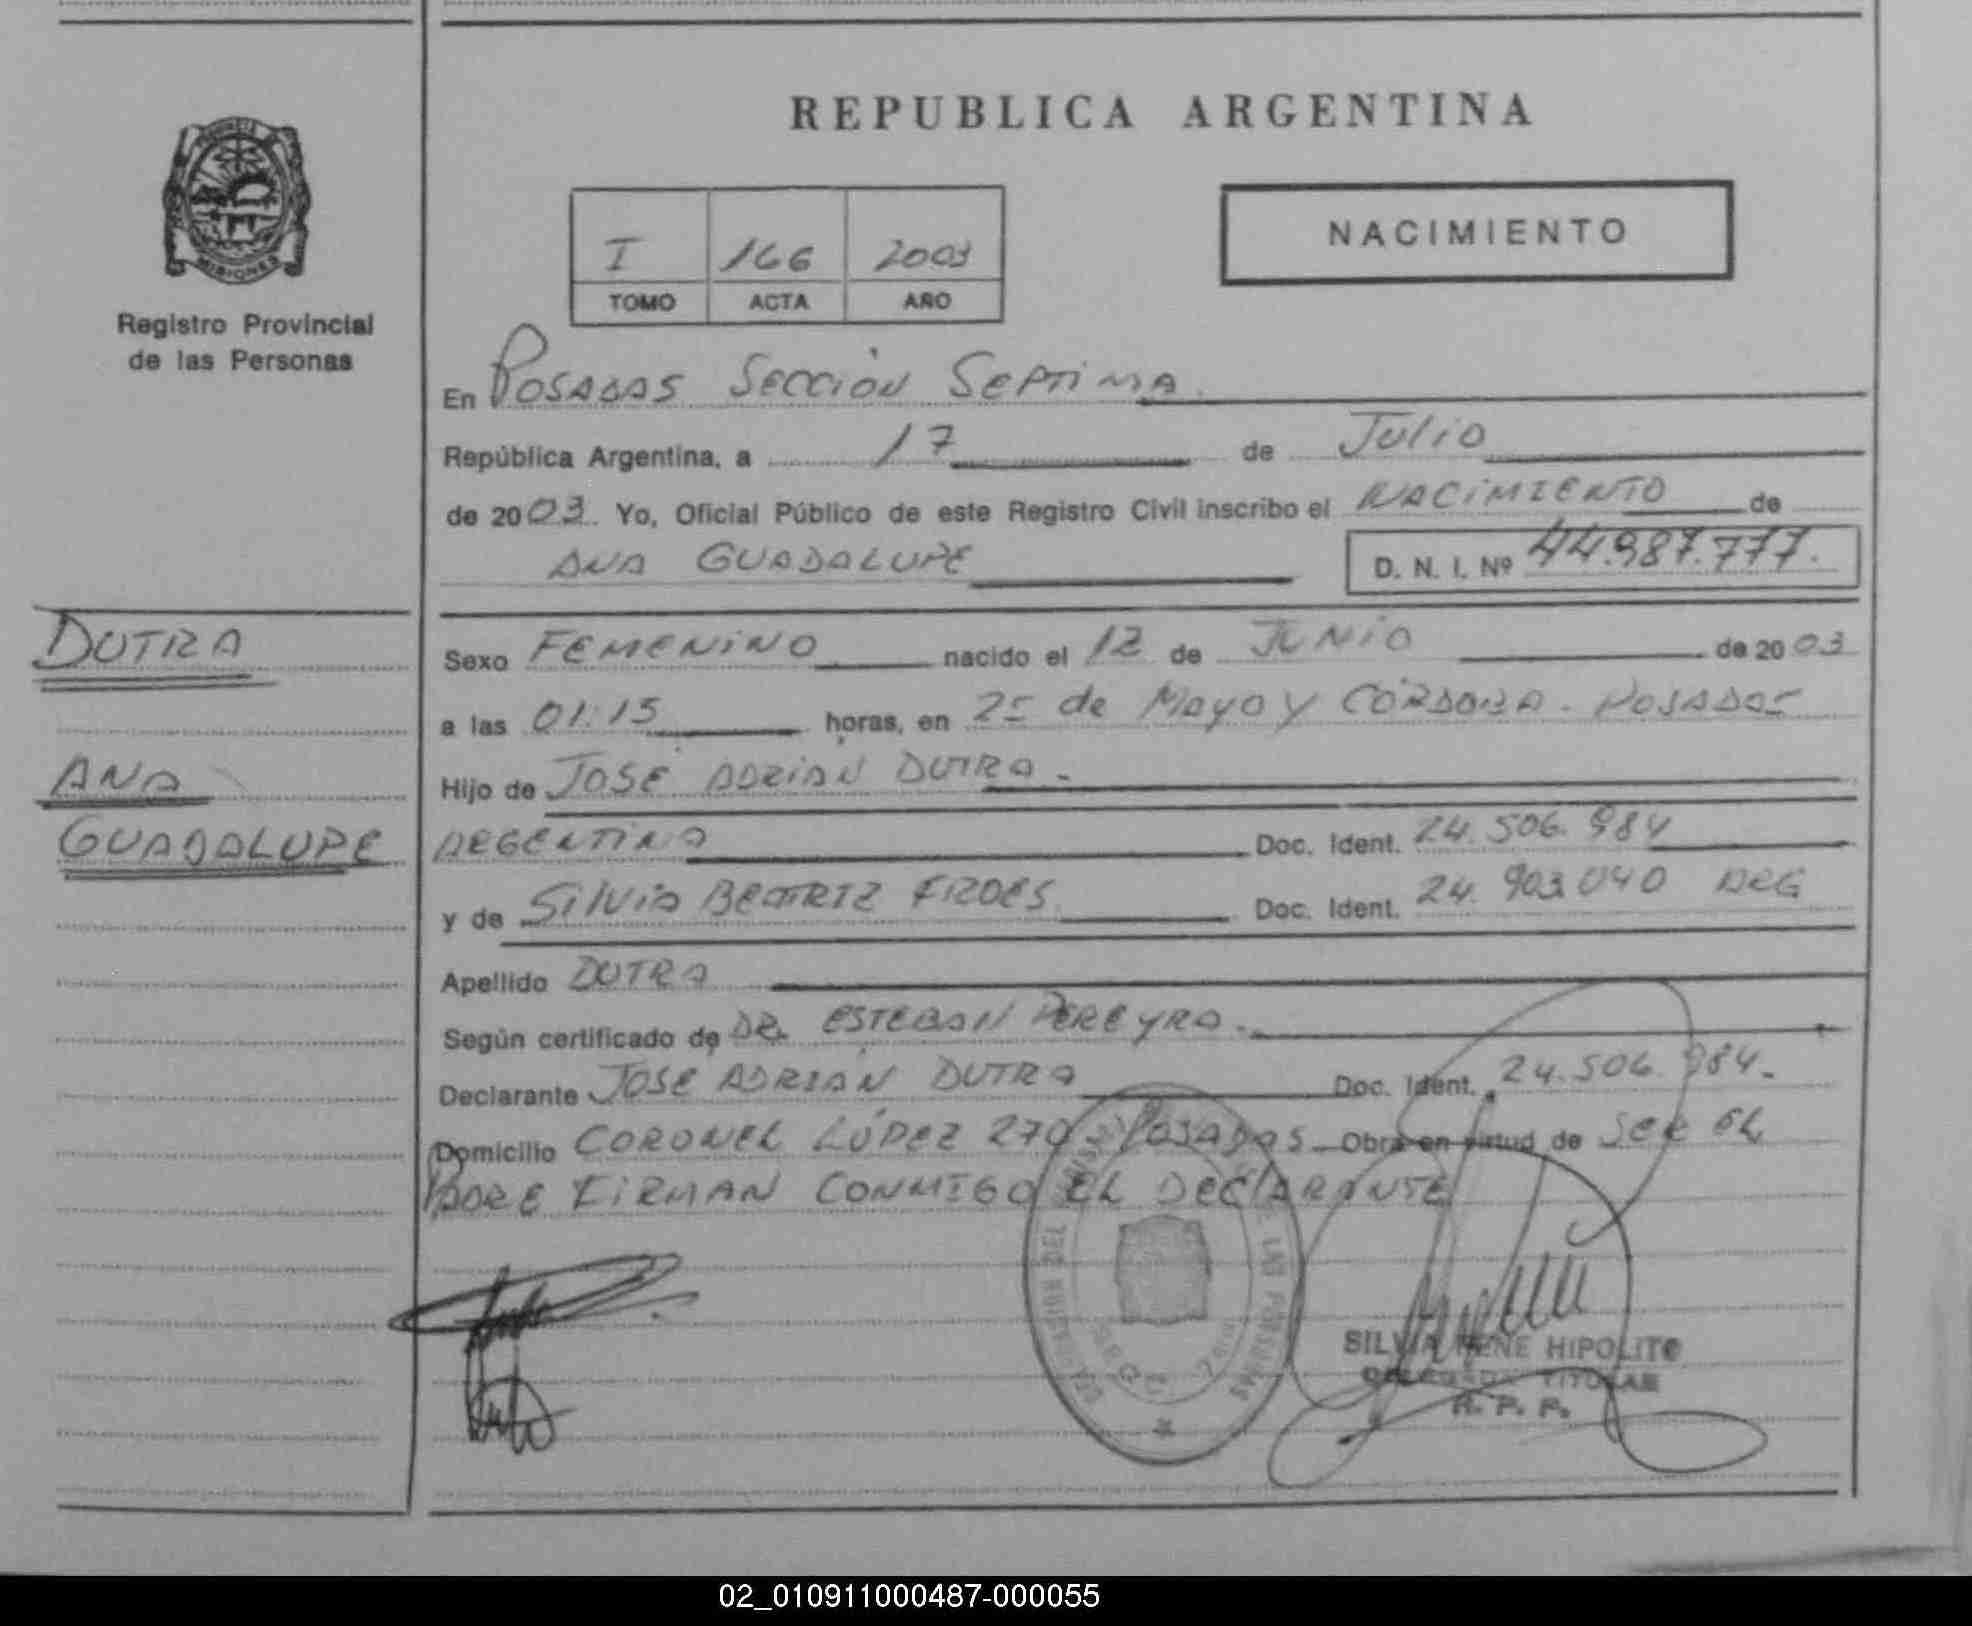 REPUBLICA ARGENTINA
MISIONES
Registro Provincial
de las Personas
I 166 2003
TOMO ACTA AÑO
NACIMIENTO
En POSADAS SECCIÓN SEPTIMA
República Argentina, a 17 de JULIO
de 2003. Yo, Oficial Público de este Registro Civil inscribo el NACIMIENTO de
ANA GUADALUPE D. N. I. Nº 44.987.777.
DUTRA
ANA
GUADALUPE
Sexo FEMENINO nacido el 12 de JUNIO de 2003
a las 01:15 horas, en 25 de MAYO y CÓRDOBA - POSADAS
Hijo de JOSÉ ADRIÁN DUTRA -
ARGENTINO Doc. Ident. 24.506.984
y de SILVIA BEATRIZ Doc. Ident. 24.903.040 ARG
Apellido DUTRA
Según certificado de DR. ESTEBAN PEREYRA -
Declarante JOSÉ ADRIÁN DUTRA Doc. Ident. 24.506.984.
Domicilio CORONEL LÓPEZ 270 - POSADAS Obra en virtud de SER EL
PADRE FIRMAN CONMIGO EL DECLARANTE
SILVIA RENE HIPOLITO
DELEGADA TITULAR
R. P. P.
02_010911000487-000055